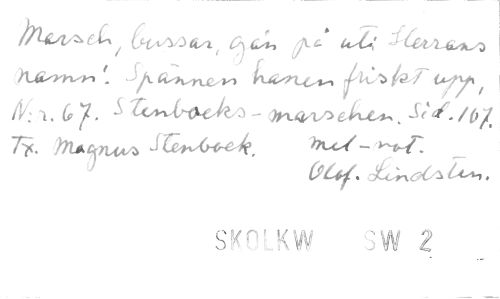 Marsch, bussar, gån på uti Herrans
namn! Spännen hanen friskt upp,
N:r. 67. Stenbocks-marschen. Sid. 107.
Tx. Magnus Stenbock. mel-not.
Olof. Lindsten.
SKOLKW SW 2